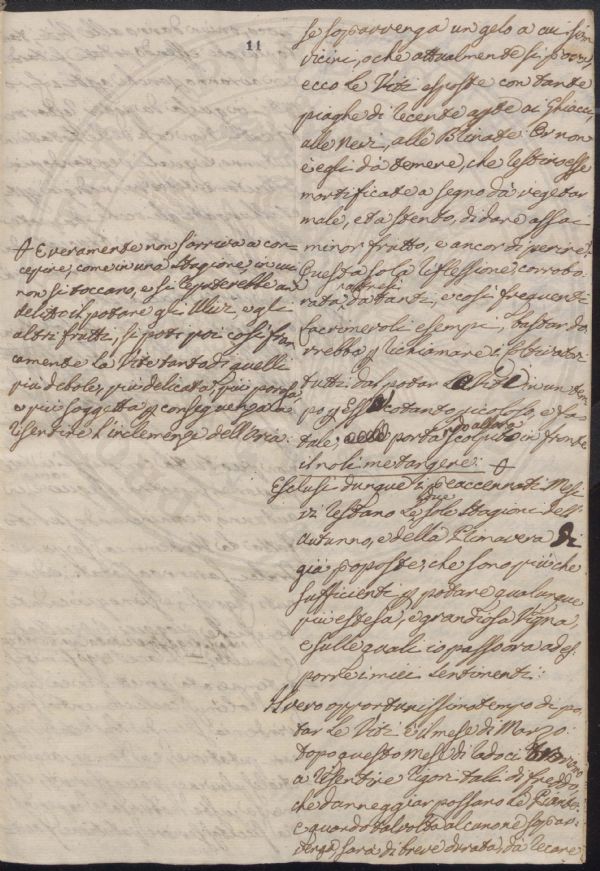 11
se sopravvenga un gelo a cui sien
vicini, o che attualmente si provi,
ecco le Viti esposte con tante
piaghe di recente apte ai Ghiacci,
alle Nevi, alle Brinate. Or non
è egli da temere, che restino esse
mortificate a segno da vegetar
male, e a stento, di dare assai
minor frutto, e ancor di perire?
Questa sola riflessione, corrobo
rata da tanti nostrisi, e così frequenti
lacrimevoli esempi, bastar do
vrebbe p richiamare i coltivatori
tutti dal potar la Vite in un tem
po p Essa cotanto pericoloso, e fa
tale, porta scolpito in fronte
il noli me tangere: +
+ E veramente non s'arriva a con
cepire, come in una Stagione, in cui
non si toccano, e si reputerebbe un
delitto il potare gli Ulivi, e gli
altri frutti, si poti poi così fran
camente la Vite tanto di quelli
più debole, più delicata, più porosa
e più soggetta p conseguenza a
risentire l'inclemenze dell'Aria.
Esclusi dunque i preaccennati Mesi
vi restano le due sole Stagioni dell'
Autunno, e della Primavera di
già proposte, che sono più che
sufficienti p potare qualunque
più estesa, e grandiosa Vigna,
e sulle quali io passerò ad es
porre i miei sentimenti:
Il vero opportunissimo tempo di po
tar le Viti è il mese di Marzo.
Dopo questo Mese di rado ci
a risentire rigori tali di freddo,
che danneggiar possano le Piante.
e quando talvolta alcuno ne soprav
venga, sarà di breve durata, da recare